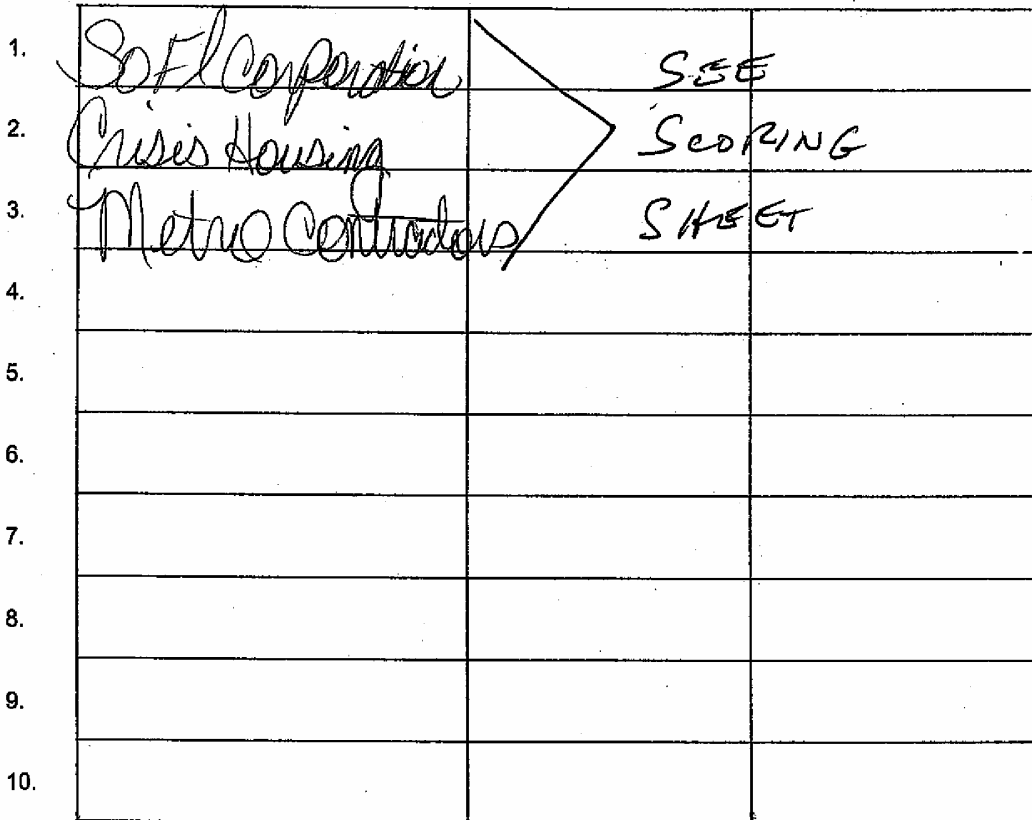 1. So Fl Corporation SEE
2. Crisis Housing SCORING
3. Metro Contractors SHEET
4.
5.
6.
7.
8.
9.
10.